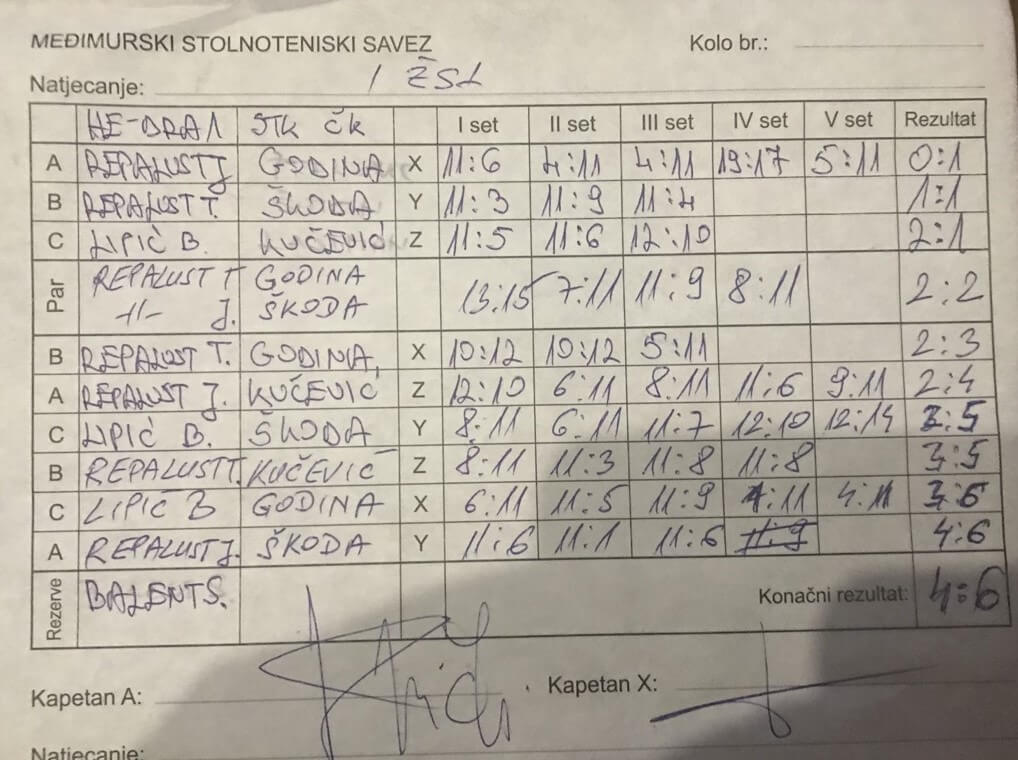 MEĐIMURSKI STOLNOTENISKI SAVEZ Kolo br.:
Natjecanje: 1 ŽSL
HE-DRA 1 STK ČK I set II set III set IV set V set Rezultat
A REPALUST J. GODINA X 11:6 4:11 4:11 19:17 5:11 0:1
B REPALUST T. ŠKODA Y 11:3 11:9 11:4 1:1
C LIPIĆ B. KUČEVIĆ Z 11:5 11:6 12:10 2:1
Par REPALUST T GODINA 13:15 7:11 11:9 8:11 2:2
-11- J. ŠKODA
B REPALUST T. GODINA X 10:12 10:12 5:11 2:3
A REPALUST J. KUČEVIĆ Z 12:10 6:11 8:11 11:6 9:11 2:4
C LIPIĆ B. ŠKODA Y 8:11 6:11 11:7 12:10 12:14 2:5
B REPALUST T. KUČEVIĆ Z 8:11 11:3 11:8 11:8 3:5
C LIPIĆ B GODINA X 6:11 11:5 11:9 4:11 3:6
A REPALUST J. ŠKODA Y 11:6 11:1 11:6 11:9 4:6
Rezerve BALENT S. Konačni rezultat: 4:6
Kapetan A: Kapetan X:
Natjecanje: